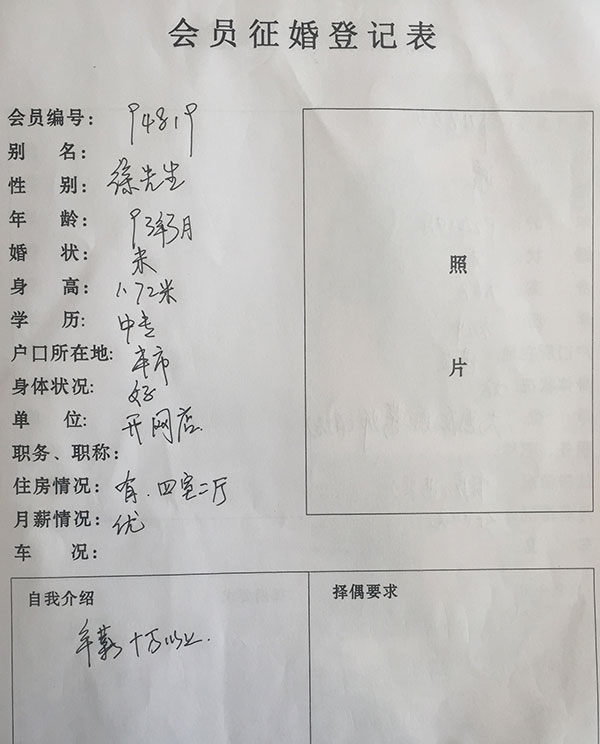 会员征婚登记表
会员编号： 94819
别 名：
性 别： 徐先生
年 龄： 93年3月
婚 状： 未
身 高： 1.72米
学 历： 中专
户口所在地： 本市
身体状况： 好
单 位： 开网店
职务、职称：
住房情况： 有．四室二厅
月薪情况： 优
车 况：
照
片
自我介绍
年薪十万以上．
择偶要求